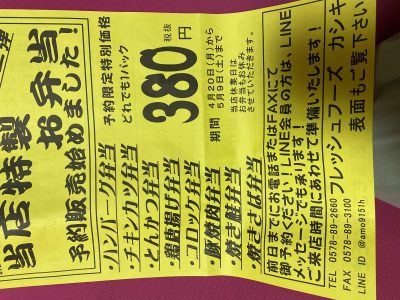 当店特製 お弁当
予約販売始めました!
予約限定特別価格
どれでも1パック
380円
税抜
期間 4月20日(月)から
5月9日(土)まで
当店休業日は、
お弁当もお休み
させていただきます。
・ハンバーグ弁当
・チキンカツ弁当
・とんかつ弁当
・鶏唐揚げ弁当
・コロッケ弁当
・豚焼肉弁当
・焼き鮭弁当
・焼きさば弁当
前日までにお電話またはFAXにて
御予約ください!LINE会員の方は、LINE
メッセージでも承ります!
ご来店時間にあわせて準備いたします!
TEL 0578-89-2660
FAX 0578-89-3100
LINE ID @amo9151h
フレッシュフーズ カシキ
表面もご覧下さい